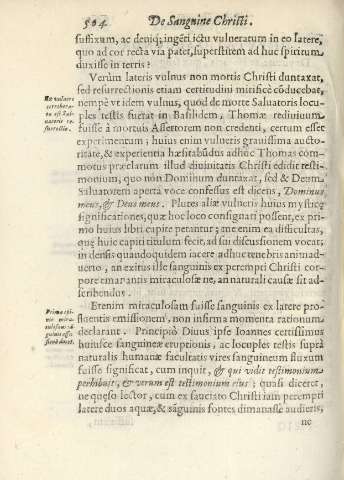 504 De Sanguine Christi.
suffixum, ac deniq; ingẽti ictu vulneratum in eo latere,
quo ad cor recta via patet, superstitem ad huc spiritum
duxisse in terris?
Verùm lateris vulnus non mortis Christi duntaxat,
sed resurrectionis etiam certitudini mirificè cõducebat,
nempè vt idem vulnus, quod de morte Saluatoris locu-
ples testis fuerat in Basilidem, Thomæ rediuiuum
fuisse à mortuis Assertorem non credenti, certum esset
experimentum; huius enim vulneris grauissima aucto-
ritate, & experientia hæsitabũdus adhuc Thomas com-
motus præclarum illud diuinitatis Christi edidit testi-
monium, quo non Dominum duntaxat, sed & Deum
Saluatorem aperta voce confessus est dicens, Dominus
meus, & Deus meus. Plures aliæ vulneris huius mysticę
significationes, quæ hoc loco consignari possent, ex pri-
mo huius libri capite petantur; me enim ea difficultas,
quę huic capiti titulum fecit, ad sui discussionem vocat;
in densis quandoquidem iacere adhuc tenebris animad-
uerto, an exitus ille sanguinis ex perempti Christi cor-
pore emanantis miraculosæ ne, an naturali causæ sit ad-
scribendus.
Etenim miraculosam fuisse sanguinis ex latere pro-
fluentis emissionem, non infirma momenta rationum
declarant. Principiò Diuus ipse Ioannes certissimus
huiusce sanguineæ eruptionis, ac locuples testis suprà
naturalis humanæ facultatis vires sanguineum fluxum
fuisse significat, cum inquit, & qui vidit testimonium
perhibuit, & verum est testimonium eius; quasi diceret,
ne quęso lector, cum ex sauciato Christi iam perempti
latere duos aquæ, & sãguinis fontes dimanasse audieris,
ne